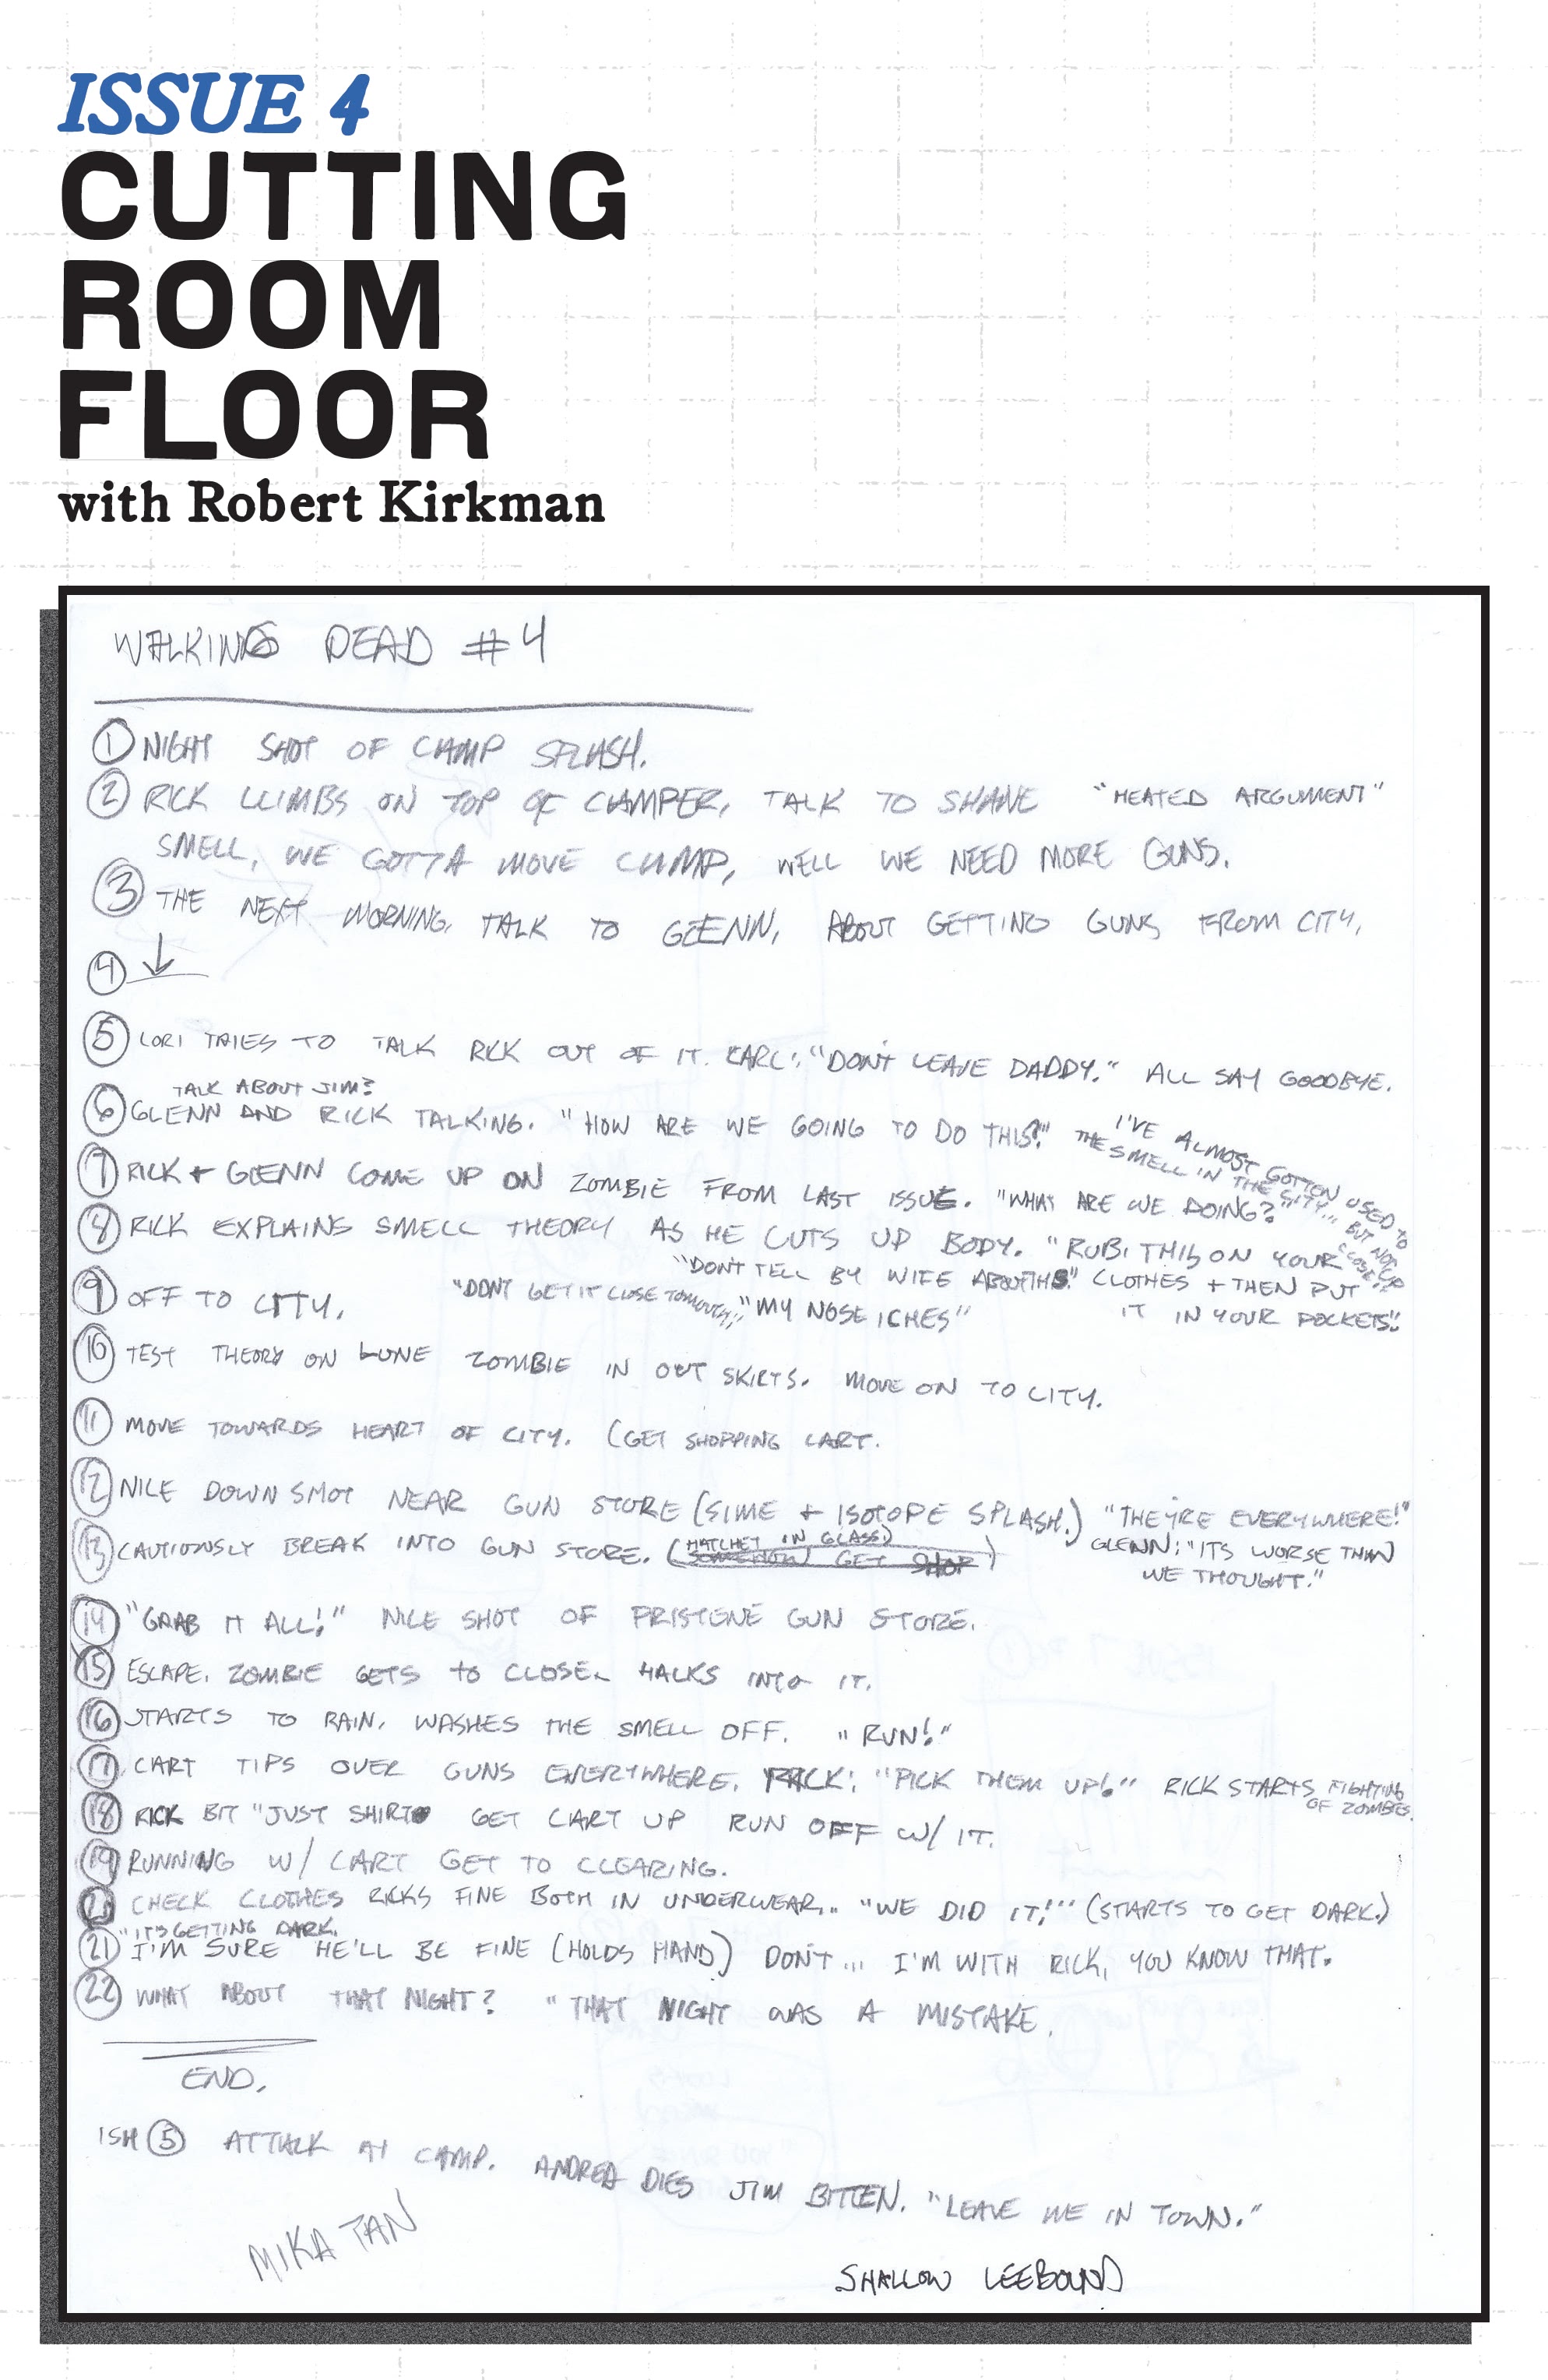 ISSUE 4
CUTTING
ROOM
FLOOR
with Robert Kirkman
WALKING DEAD #4
1 NIGHT SHOT OF CAMP SPLASH.
2 RICK CLIMBS ON TOP OF CAMPER, TALK TO SHANE "HEATED ARGUMENT"
SMELL, WE GOTTA MOVE CAMP, WELL WE NEED MORE GUNS.
3 THE NEXT MORNING, TALK TO GLENN, ABOUT GETTING GUNS FROM CITY,
4 ↓
5 LORI TRIES TO TALK RICK OUT OF IT. CARL: "DON'T LEAVE DADDY." ALL SAY GOODBYE.
TALK ABOUT JIM?
6 GLENN AND RICK TALKING. "HOW ARE WE GOING TO DO THIS?" I'VE ALMOST GOTTEN USED TO
THE SMELL IN THE CITY... BUT NOT UP CLOSE."
7 RICK + GLENN COME UP ON ZOMBIE FROM LAST ISSUE. "WHAT ARE WE DOING?"
8 RICK EXPLAINS SMELL THEORY AS HE CUTS UP BODY. "RUB THIS ON YOUR
CLOTHES + THEN PUT
IT IN YOUR POCKETS".
"DON'T TELL BY WIFE ABOUT THIS."
9 OFF TO CITY. "DON'T GET IT CLOSE TO MOUTH," "MY NOSE ICHES"
10 TEST THEORY ON LONE ZOMBIE IN OUT SKIRTS. MOVE ON TO CITY.
11 MOVE TOWARDS HEART OF CITY. (GET SHOPPING CART.
12 NICE DOWN SHOT NEAR GUN STORE (SIME + ISOTOPE SPLASH.) "THEY'RE EVERYWHERE!"
GLENN: "ITS WORSE THAN
WE THOUGHT."
13 CAUTIOUSLY BREAK INTO GUN STORE. (HATCHET IN GLASS)
SOMEHOW GET SHOP)
14 "GRAB IT ALL!" NICE SHOT OF PRISTENE GUN STORE.
15 ESCAPE. ZOMBIE GETS TO CLOSE. HALKS INTO IT.
16 STARTS TO RAIN, WASHES THE SMELL OFF. "RUN!"
17 CART TIPS OVER GUNS EVERYWHERE. RICK: "PICK THEM UP!" RICK STARTS FIGHTING
OF ZOMBIES.
18 RICK BIT "JUST SHIRT" GET CART UP RUN OFF W/ IT.
19 RUNNING W/ CART GET TO CLEARING.
20 CHECK CLOTHES RICKS FINE BOTH IN UNDERWEAR... "WE DID IT!" (STARTS TO GET DARK.)
"IT'S GETTING DARK.
21 I'M SURE HE'LL BE FINE (HOLDS HAND) DON'T... I'M WITH RICK, YOU KNOW THAT.
22 WHAT ABOUT THAT NIGHT? "THAT NIGHT WAS A MISTAKE.
END.
ISH 5 ATTACK AT CAMP. ANDREA DIES JIM BITTEN. "LEAVE ME IN TOWN."
MIKA TAN
SHALLOW LEEBOUND